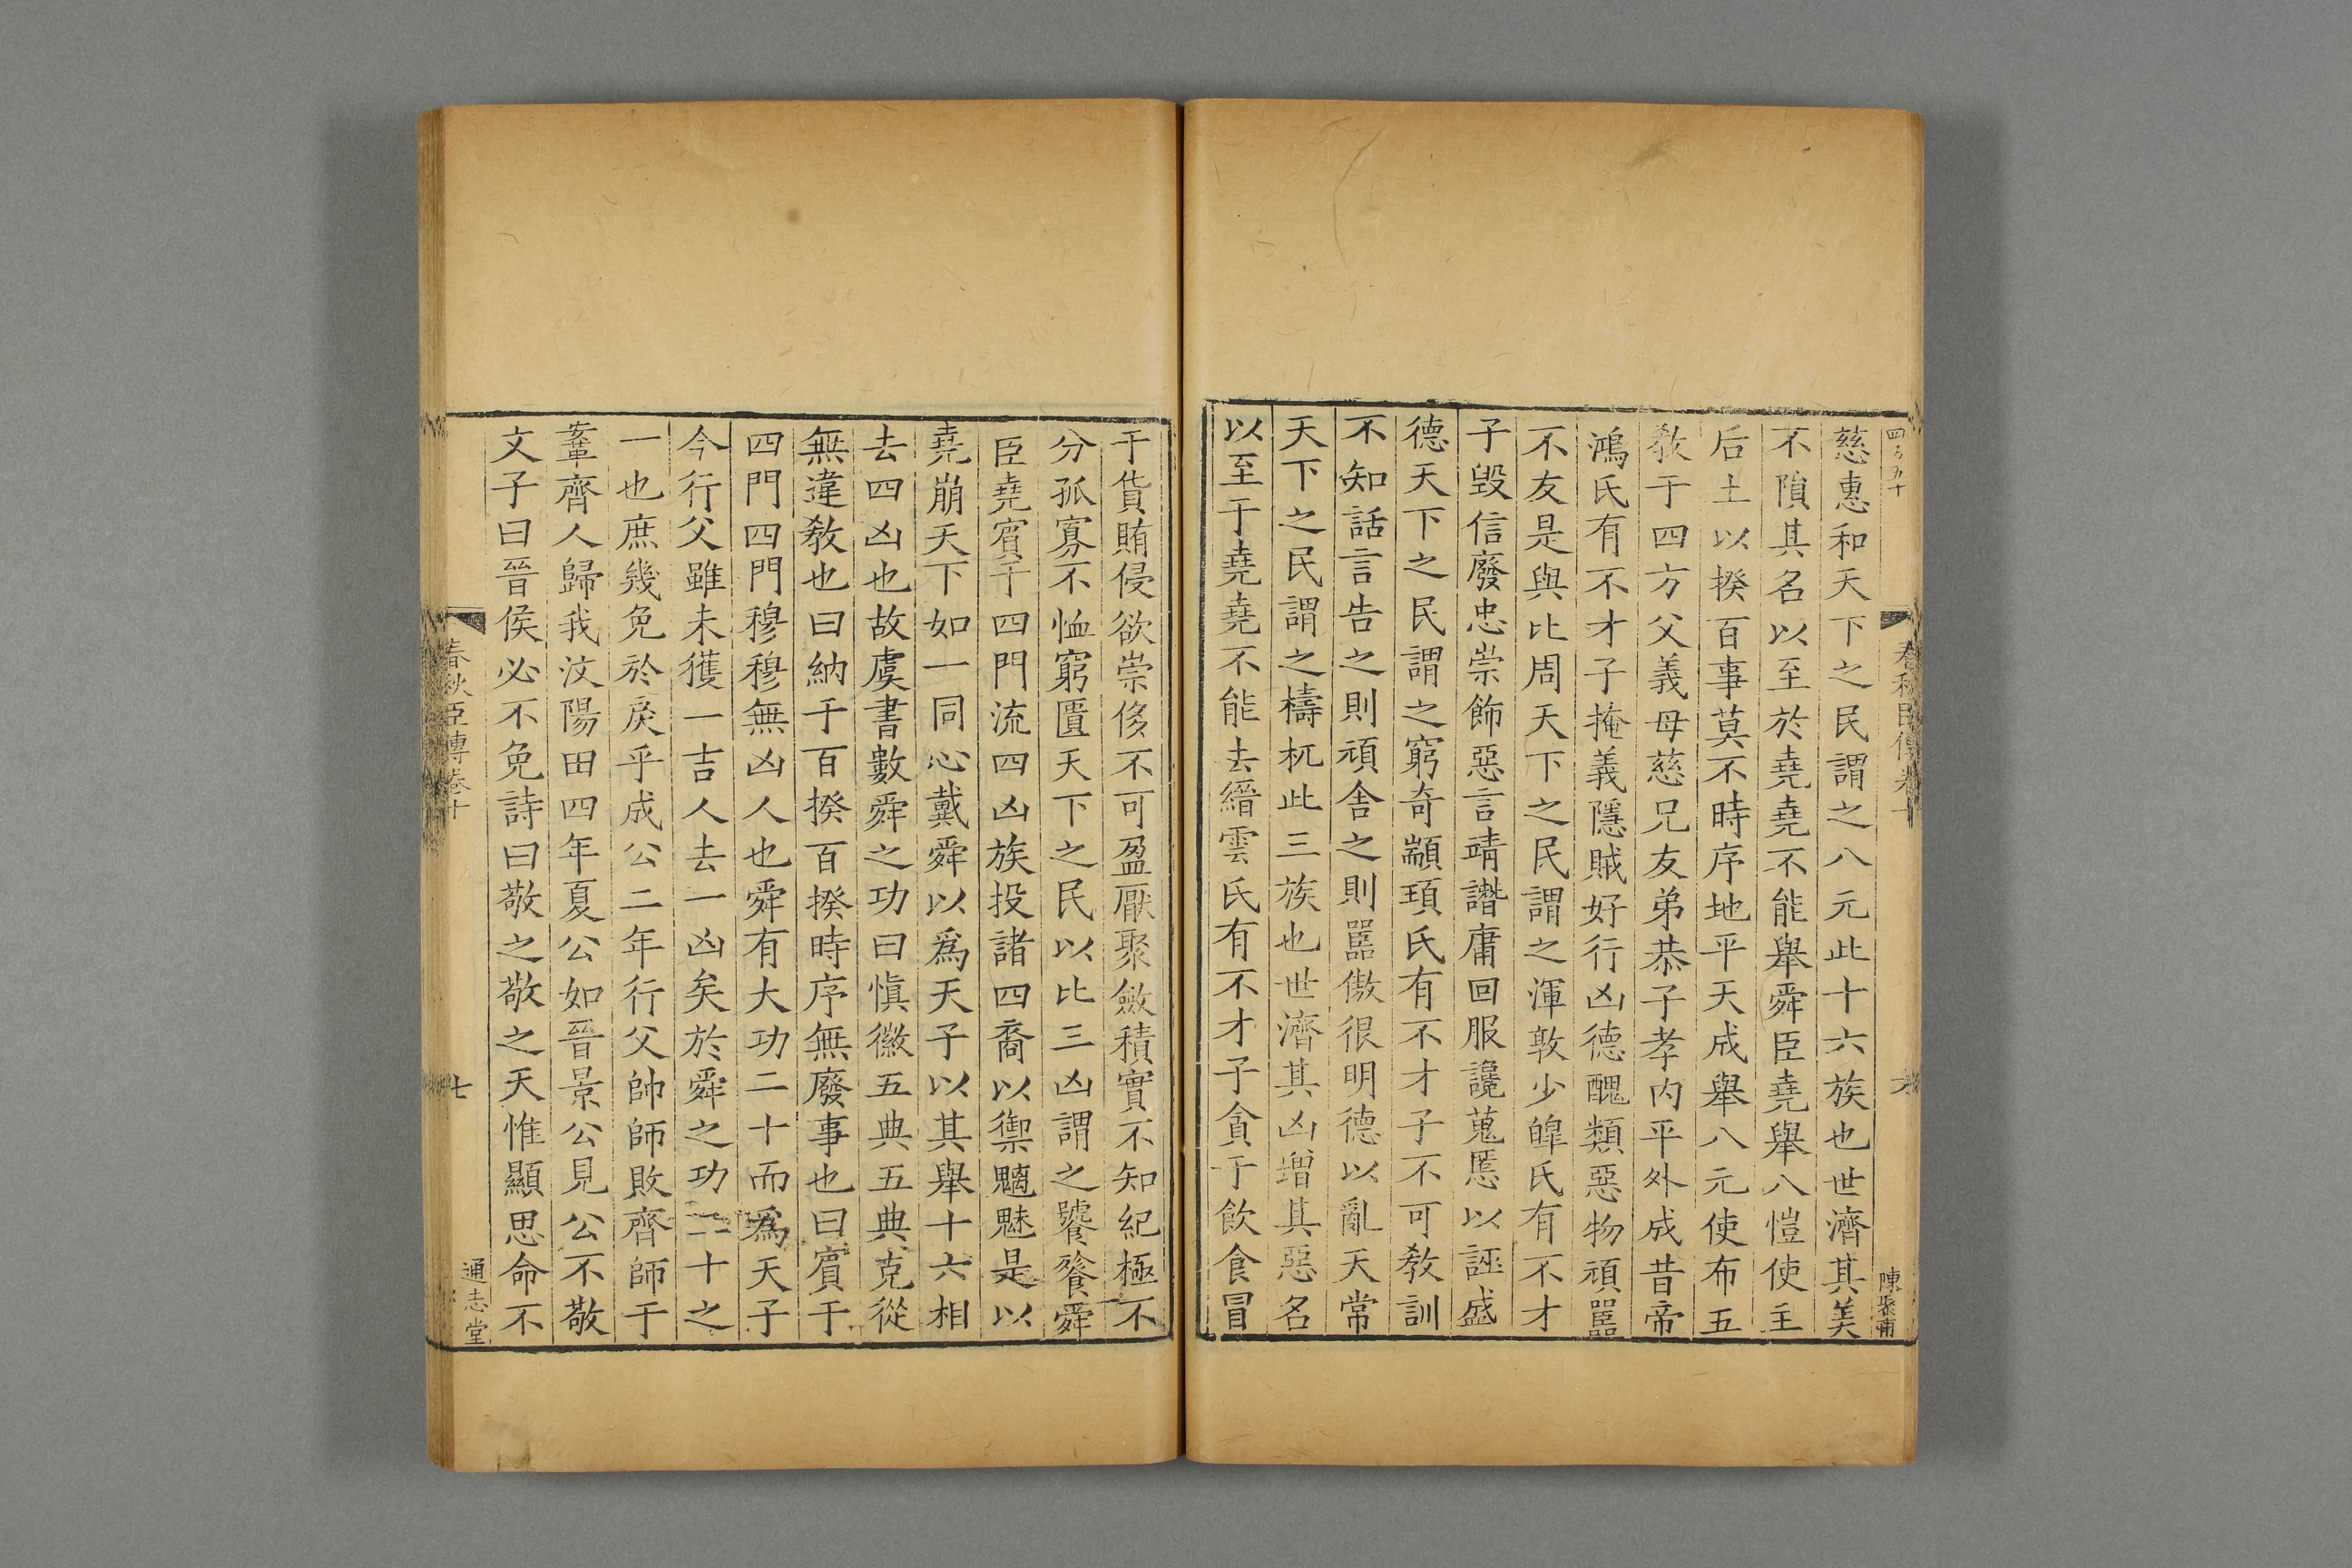 四百五十
春秋臣傳卷十
六
陳聚甫
慈惠和天下之民謂之八元此十六族也世濟其美
不隕其名以至於堯堯不能舉舜臣堯舉八愷使主
后土以揆百事莫不時序地平天成舉八元使布五
敎于四方父義母慈兄友弟恭子孝内平外成昔帝
鴻氏有不才子掩義隱賊好行凶德醜類惡物頑嚚
不友是與比周天下之民謂之渾敦少皥氏有不才
子毁信廢忠崇飾惡言靖譖庸回服讒蒐慝以誣盛
德天下之民謂之窮奇顓頊氏有不才子不可敎訓
不知話言告之則頑舍之則嚚傲很明德以亂天常
天下之民謂之檮杌此三族也世濟其凶增其惡名
以至于堯堯不能去縉雲氏有不才子貪于飲食冒
于貨賄侵欲崇侈不可盈厭聚斂積實不知紀極不
分孤寡不恤窮匱天下之民以比三凶謂之饕餮舜
臣堯賓于四門流四凶族投諸四裔以禦魑魅是以
堯崩天下如一同心戴舜以爲天子以其舉十六相
去四凶也故虞書數舜之功曰愼徽五典五典克從
無違敎也曰納于百揆百揆時序無廢事也曰賓于
四門四門穆穆無凶人也舜有大功二十而爲天子
今行父雖未獲一吉人去一凶矣於舜之功二十之
一也庶幾免於戾乎成公二年行父帥師敗齊師于
鞌齊人歸我汶陽田四年夏公如晉景公見公不敬
文子曰晉侯必不免詩曰敬之敬之天惟顯思命不
春秋臣傳卷十
七
通志堂